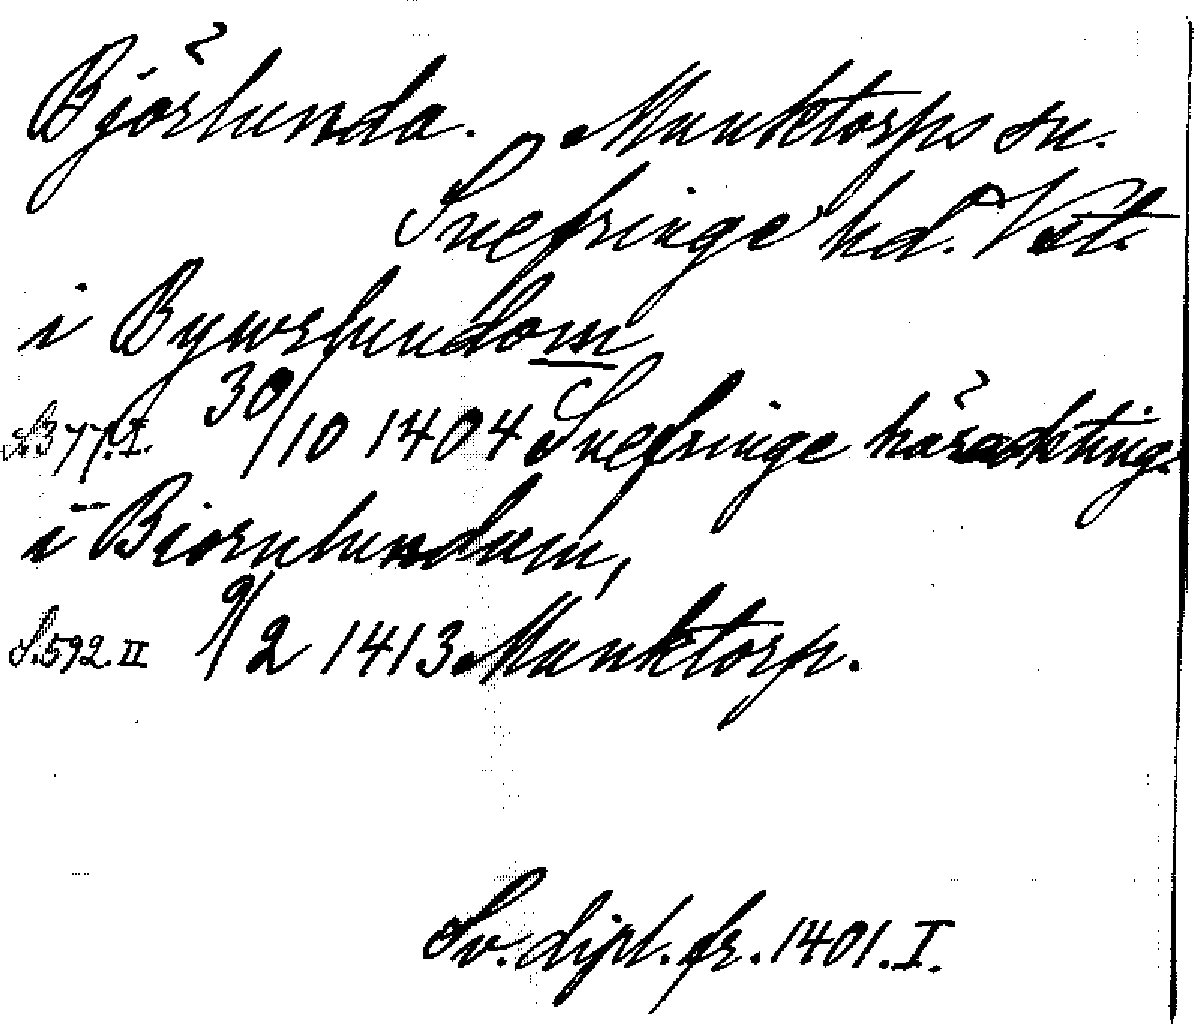 Björlunda. Munktorps sn.
Snefringe hd. Vstl.
i Bywrlundom
S. 377. I. 30/10 1404 Snefringe häradsting.
i Biornlundum,
S. 592. II 9/2 1413 Munktorp.
Sv. dipl. fr. 1401. I.